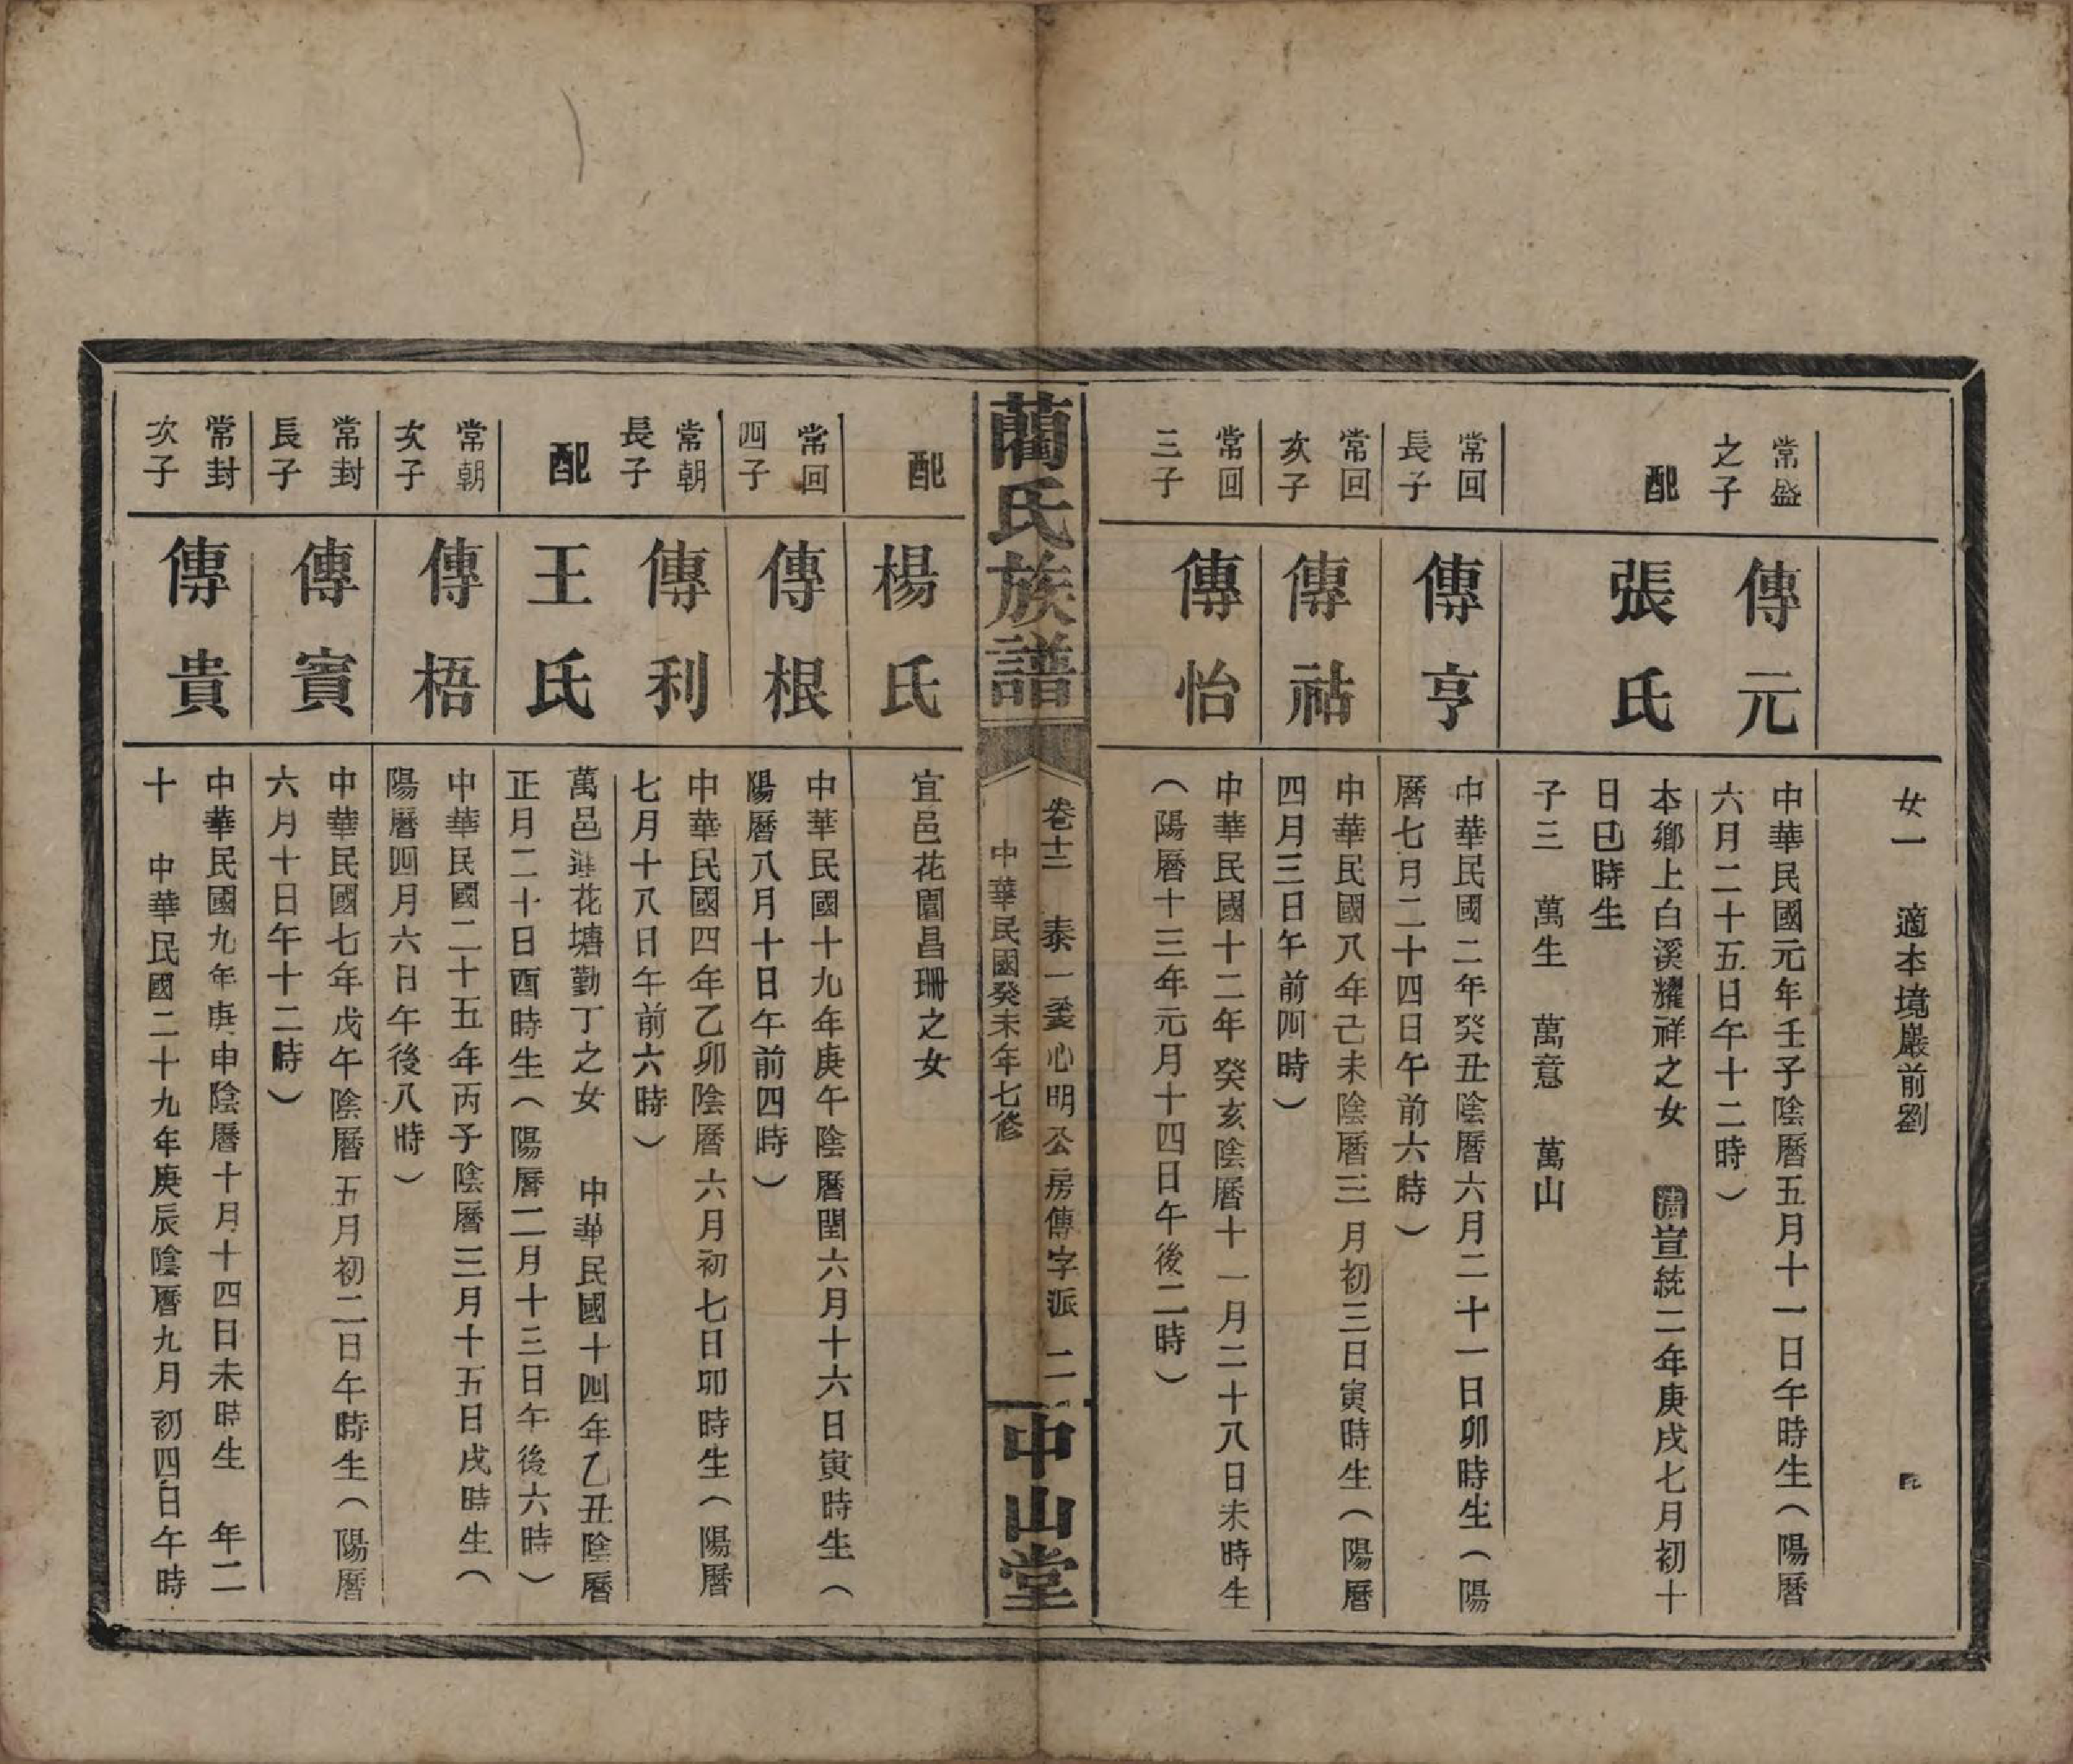 女一　適本境巖前劉
常盛
之子
傳元
中華民國元年壬子陰曆五月十一日午時生（陽曆
六月二十五日午十二時）
配
張氏
本鄉上白溪耀祥之女　清宣統二年庚戌七月初十
日巳時生
子三　萬生　萬意　萬山
常回
長子
傳亨
中華民國二年癸丑陰曆六月二十一日卯時生（陽
曆七月二十四日午前六時）
常回
次子
傳祜
中華民國八年己未陰曆三月初三日寅時生（陽曆
四月三日午前四時）
常回
三子
傳怡
中華民國十二年癸亥陰曆十一月二十八日未時生
（陽曆十三年元月十四日午後二時）
藺氏族譜
卷十二　泰一 心明公房傳字派　二
中華民國癸未年七修
中山堂
配
楊氏
宜邑花園昌珊之女
常回
四子
傳根
中華民國十九年庚午陰曆閏六月十六日寅時生（
陽曆八月十日午前四時）
常朝
長子
傳利
中華民國四年乙卯陰曆六月初七日卯時生（陽曆
七月十八日午前六時）
配
王氏
萬邑蓮花塘勤丁之女　中華民國十四年乙丑陰曆
正月二十日酉時生（陽曆二月十三日午後六時）
常朝
次子
傳梧
中華民國二十五年丙子陰曆三月十五日戌時生（
陽曆四月六日午後八時）
常封
長子
傳賓
中華民國七年戊午陰曆五月初二日午時生（陽曆
六月十日午十二時）
常封
次子
傳貴
中華民國九年庚申陰曆十月十四日未時生　年二
十　中華民國二十九年庚辰陰曆九月初四日午時